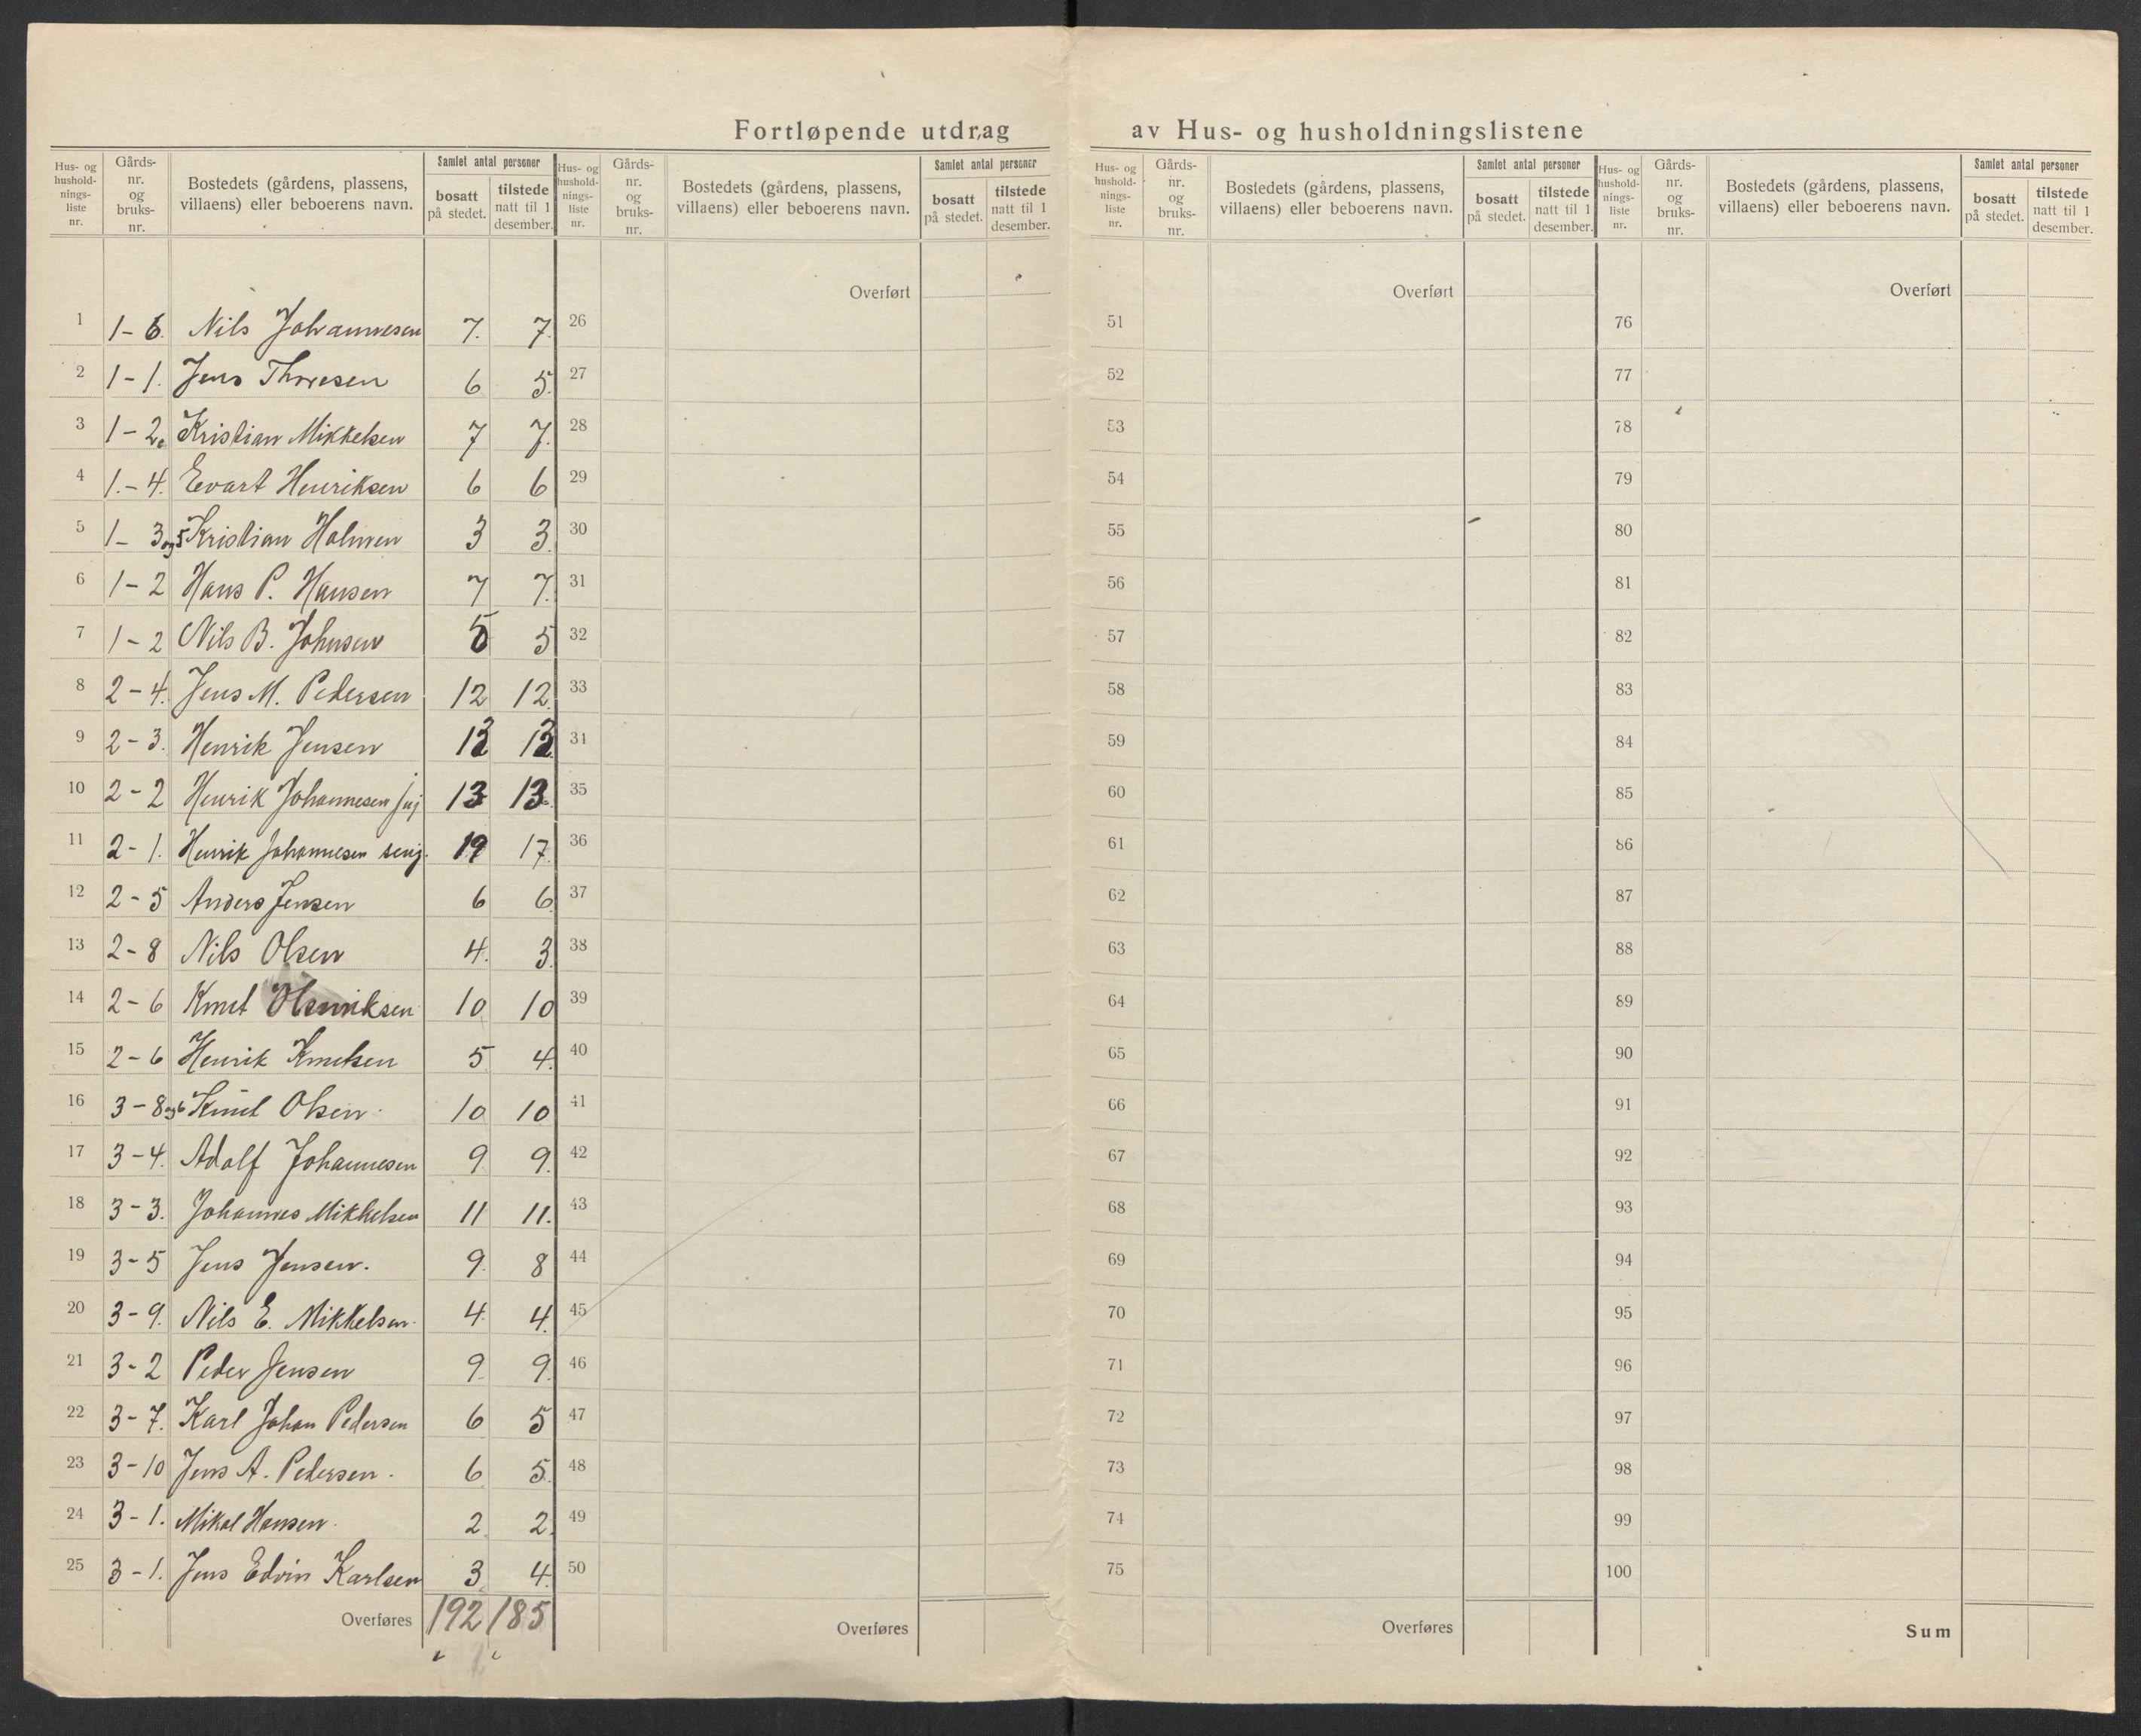 Fortløpende utdrag av Hus- og husholdningslistene
Hus- og hushold- nings- liste nr. | Gårds- nr. og bruks- nr. | Bostedets (gårdens, plassens, villaens) eller beboerens navn. | Samlet antal personer | bosatt på stedet. | tilstede natt til 1 desember.
Hus- og hushold- nings- liste nr. | Gårds- nr. og bruks- nr. | Bostedets (gårdens, plassens, villaens) eller beboerens navn. | Samlet antal personer | bosatt på stedet. | tilstede natt til 1 desember.
Hus- og hushold- nings- liste nr. | Gårds- nr. og bruks- nr. | Bostedets (gårdens, plassens, villaens) eller beboerens navn. | Samlet antal personer | bosatt på stedet. | tilstede natt til 1 desember.
Hus- og hushold- nings- liste nr. | Gårds- nr. og bruks- nr. | Bostedets (gårdens, plassens, villaens) eller beboerens navn. | Samlet antal personer | bosatt på stedet. | tilstede natt til 1 desember.
Overført Overført Overført
1 1-6. Nils Johannesen 7. 7. 26 51 76
2 1-1. Jens Thoresen 6 5. 27 52 77
3 1-2. Kristian Mikkelsen 7 7. 28 53 78
4 1.-4. Evart Henriksen 6 6 29 54 79
5 1-3 og 5 Kristian Holmen 3 3. 30 55 80
6 1-2 Hans P. Hansen 7 7. 31 56 81
7 1-2 Nils B. Johnsen 5 5 32 57 82
8 2-4. Jens M. Pedersen 12 12. 33 58 83
9 2-3. Henrik Jensen 34 59 84
10 2-2 Henrik Johannesen junj 13 13. 35 60 85
11 2-1. Henrik Johannesen senj. 19 17. 36 61 86
12 2-5 Anders Jensen 6 6. 37 62 87
13 2-8 Nils Olsen 4. 3. 38 63 88
14 2-6 Knut Henriksen 10 10 39 64 89
15 2-6 Henrik Knutsen 5 4. 40 65 90
16 3-8 og 6 Knut Olsen. 10 10 41 66 91
17 3-4. Adolf Johannesen 9 9. 42 67 92
18 3-3. Johannes Mikkelsen 11 11. 43 68 93
19 3-5 Jens Jensen. 9. 8 44 69 94
20 3-9. Nils E. Mikkelsen. 4 4. 45 70 95
21 3-2 Peder Jensen 9. 9. 46 71 96
22 3-7. Karl Johan Pedersen 6 5 47 72 97
23 3-10 Jens A. Pedersen. 6 5. 48 73 98
24 3-1. Mikal Hansen. 2 2. 49 74 99
25 3-1. Jens Edvin Karlsen 3 4. 50 75 100
Overføres 192 185 Overføres Overføres Sum